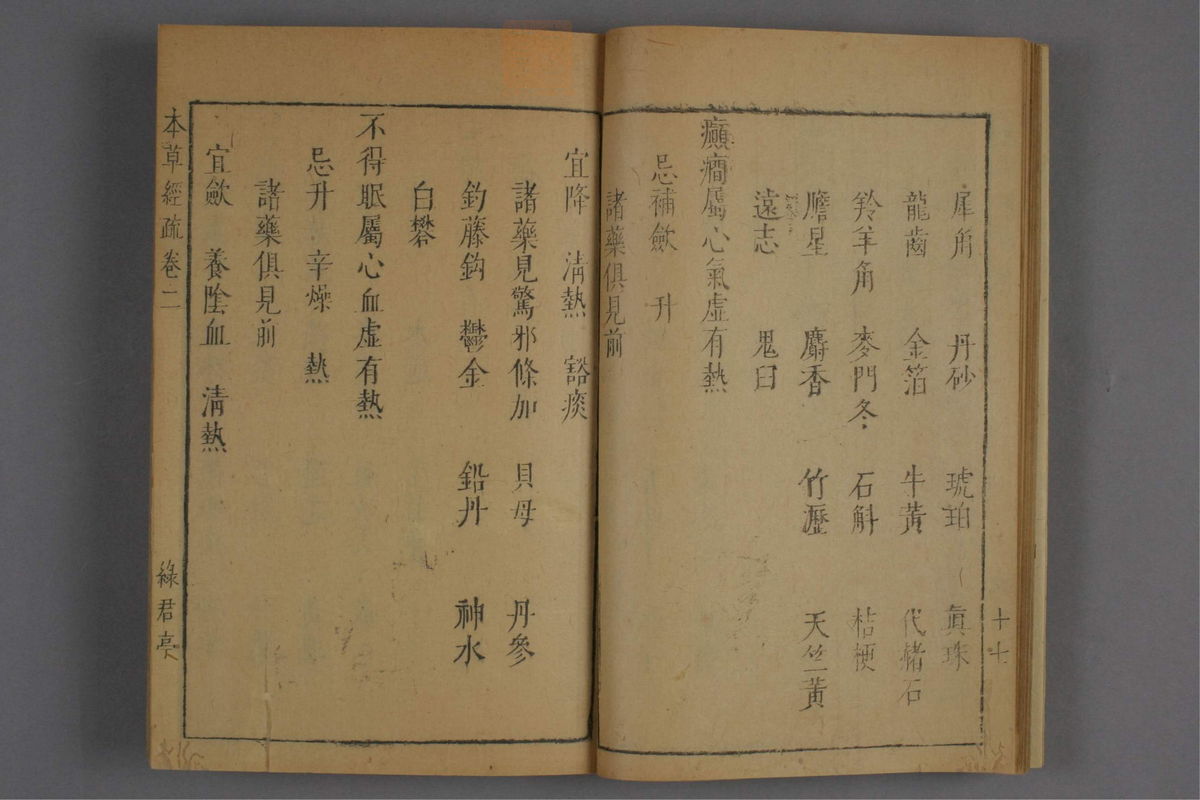 犀角 丹砂 琥珀 真珠
龍齒 金箔 牛黃 代赭石
羚羊角 麥門冬 石斛 桔梗
膽星 麝香 竹瀝 天竺黃
遠志 鬼臼
癲癎屬心氣虛有熱
忌補斂 升
諸藥俱見前
十七
宜降 清熱 豁痰
諸藥見驚邪條加 貝母 丹參
釣藤鈎 鬱金 鉛丹 神水
白礬
不得眠屬心血虛有熱
忌升 辛燥 熱
諸藥俱見前
宜斂 養陰血 清熱
本草經疏 卷二 綠君亭